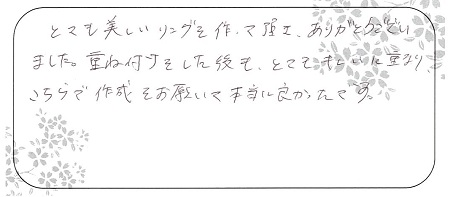 とても美しいリングを作って頂き、ありがとうござい
ました。重ね付けをした後も、とてもきれいに重なり、
こちらで作成をお願いして本当に良かったです。